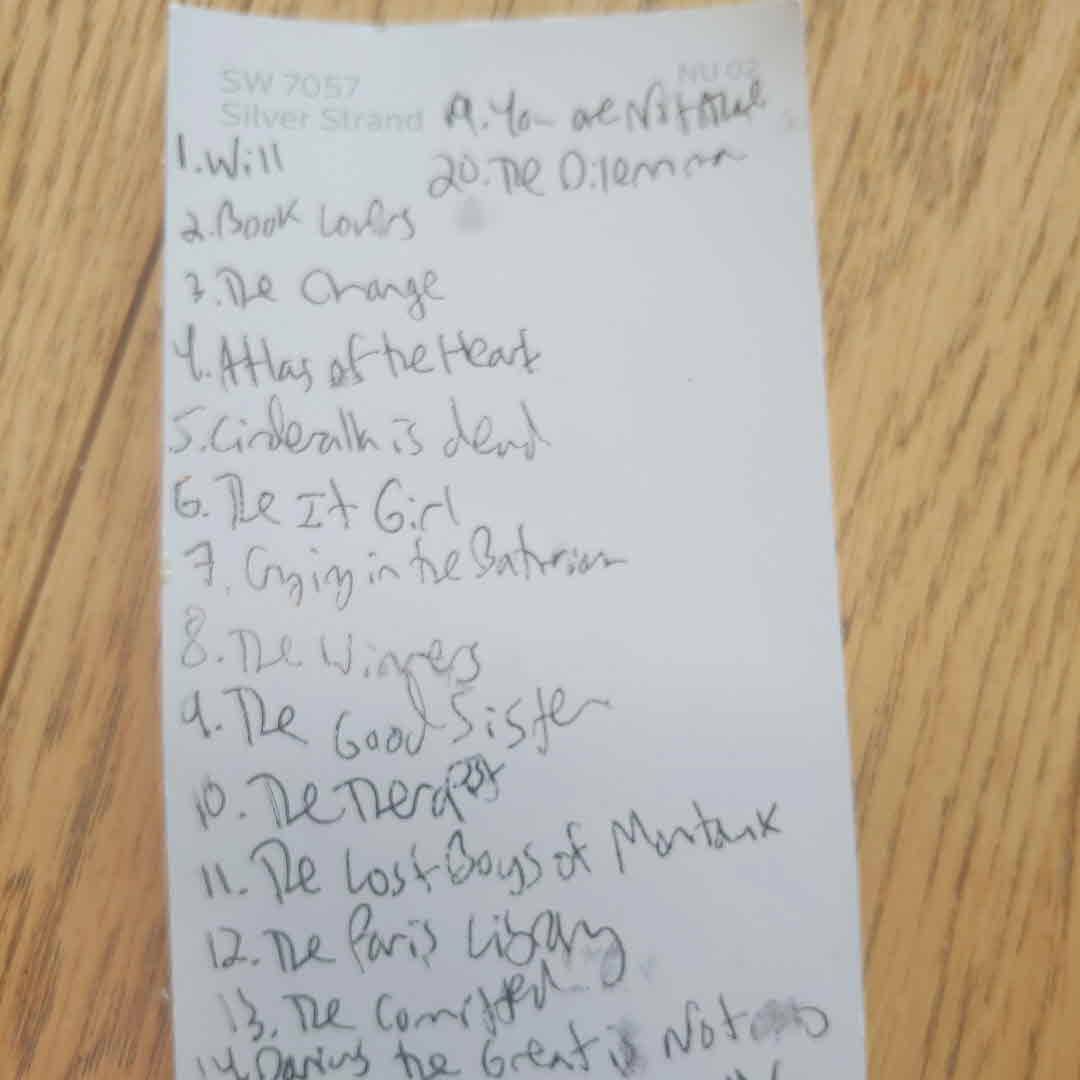 SW 7057
NU 02
Silver Strand
19. You are Not Alone
1. Will
20. The Dilemma
2. Book Lovers
3. The Change
4. Atlas of the Heart
5. Cinderalla is dead
6. The It Girl
7. Crying in the Bathroom
8. The Winners
9. The Good Sister
10. The Therapist
11. The Lost Boys of Montauk
12. The Paris Library
13. The Committed
14. Darius the Great is Not